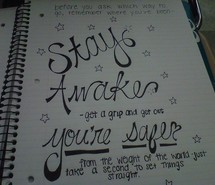 before you ask which way to
go, remember where you've been.
Stay
Awake
- get a grip and get out
you're safer
from the weight of the world just
take a second to set things
straight.